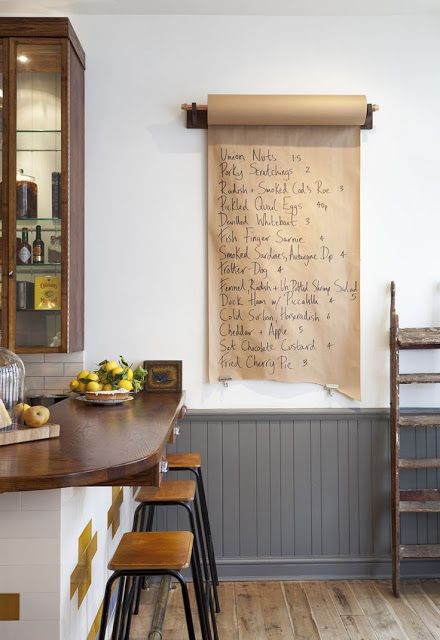 Union Nuts 1.5
Porky Scratchings 2
Radish + Smoked Cod's Roe 3
Pickled Quail Eggs 40p
Devilled Whitebait 3
Fish Finger Sarnie 4
Smoked Sardines, Aubergine Dip 4
Trotter-Dog 4
Fennel, Radish + Un-Pitted Shrimp Salad 5
Duck Ham w/ Piccalilli 4
Cold Sirloin, Horseradish 6
Cheddar + Apple 5
Set Chocolate Custard 4
Fried Cherry Pie 3